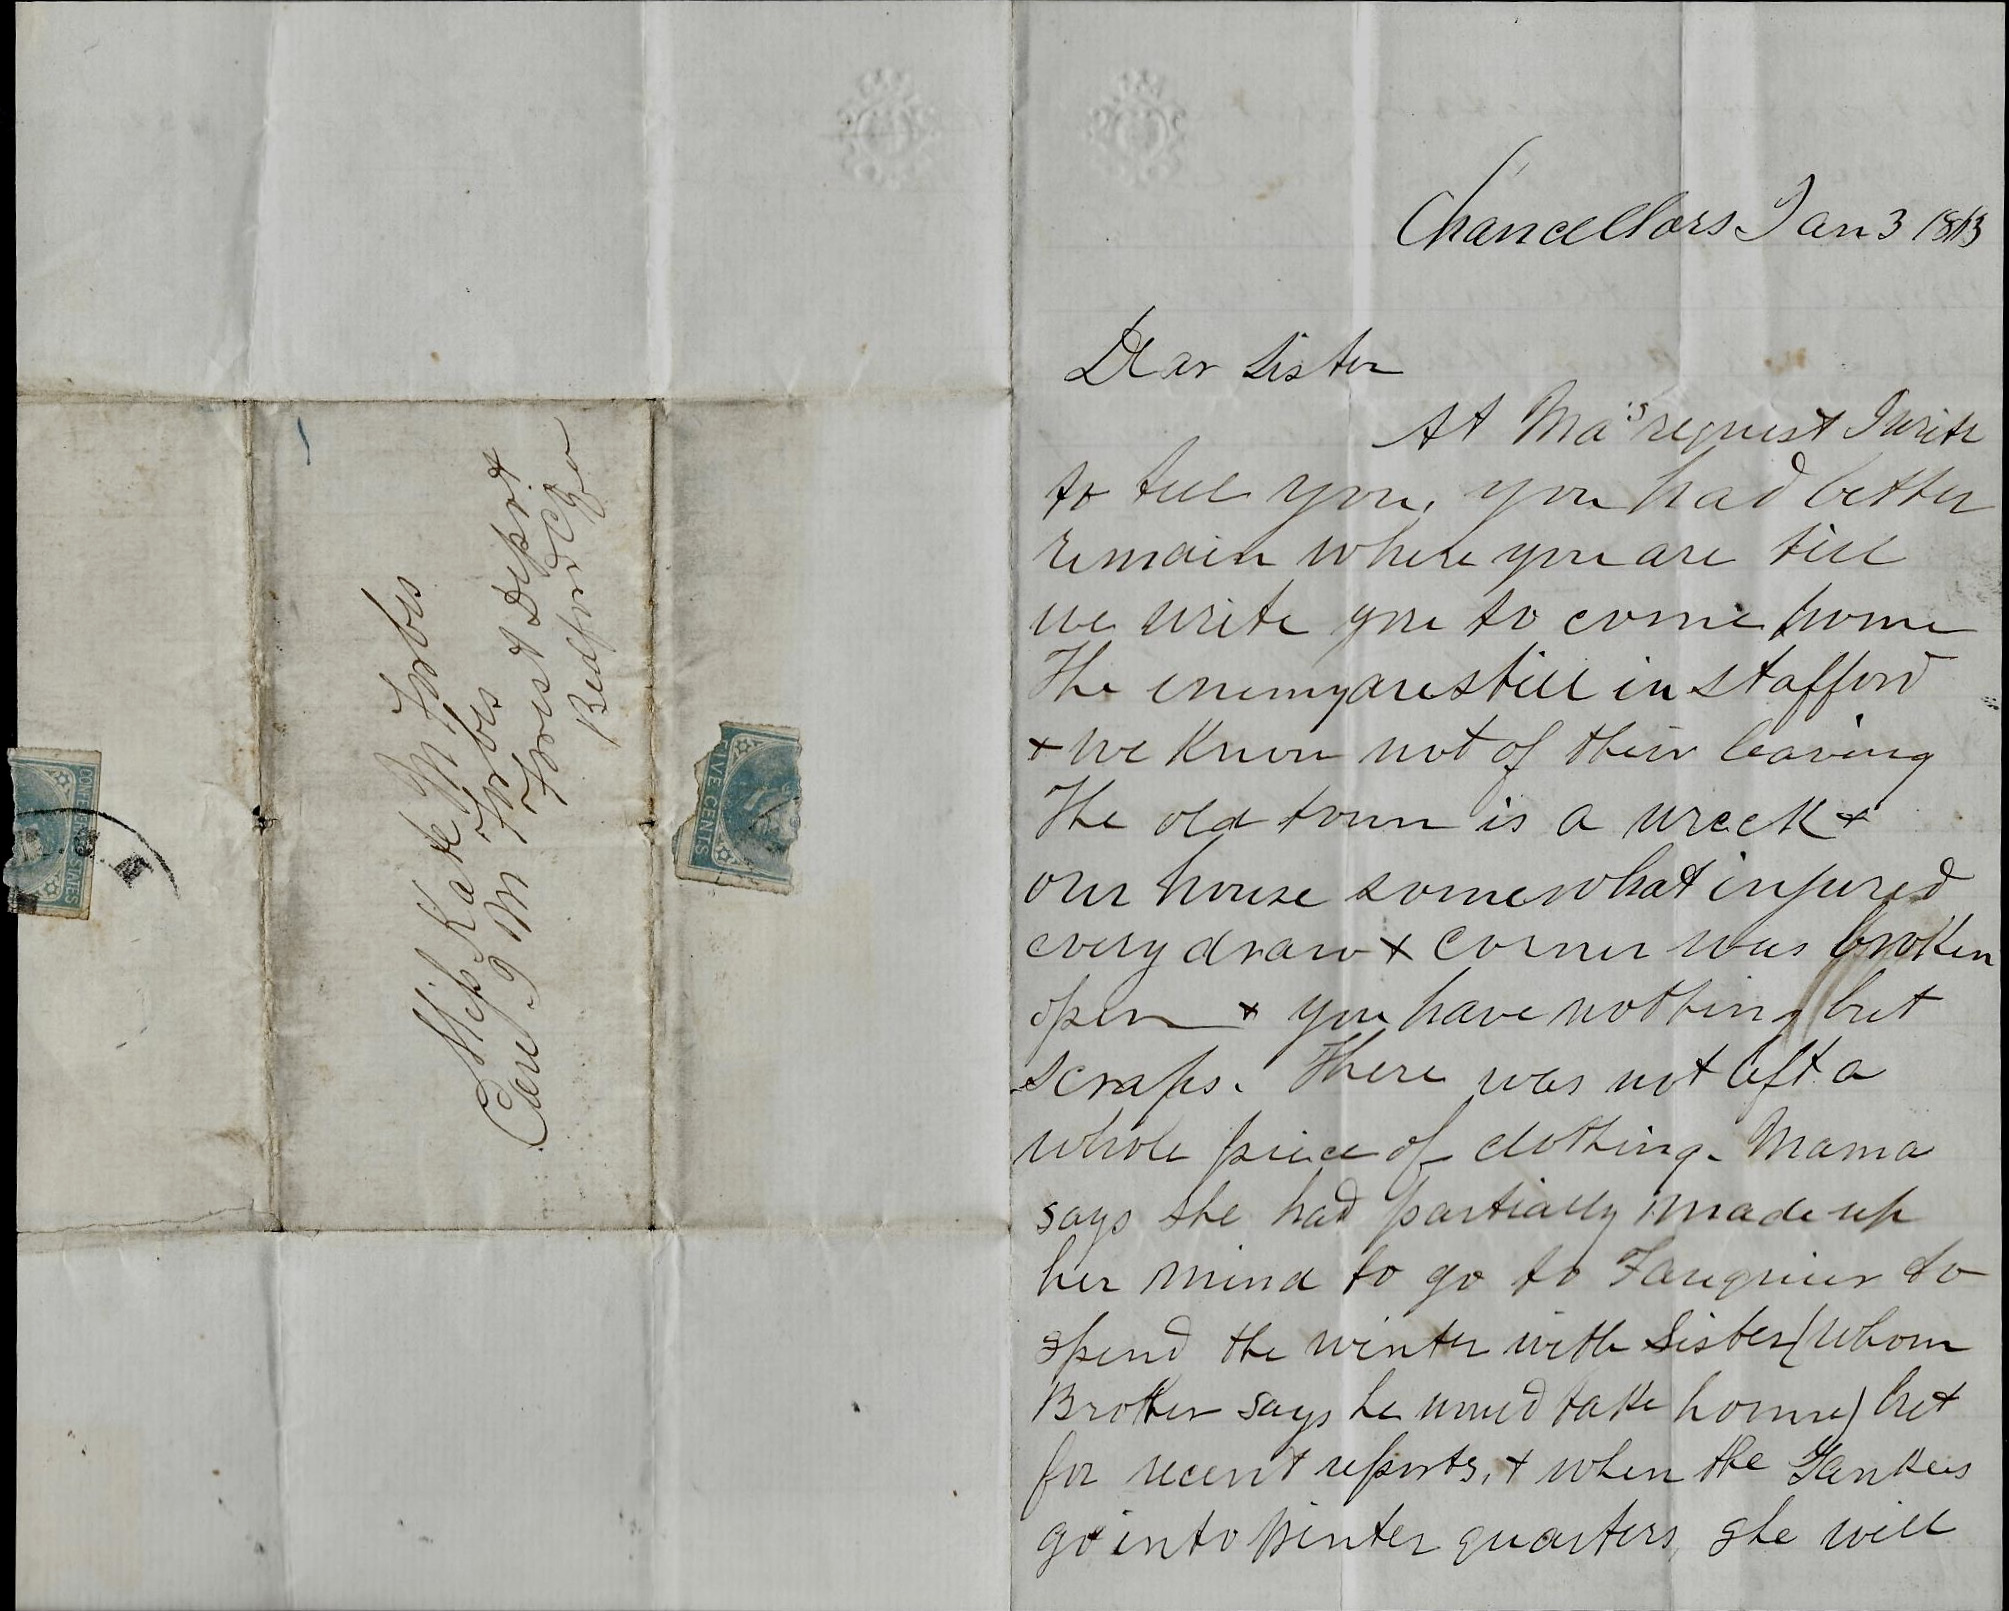 Miss Kate M. Forbes
Care J M Forbes
Forest Depot
Bedford Co
Va
CONFEDERATE STATES
FIVE CENTS
Chancellors Jan 3 1863
Dear Sister
At Ma's request I write
to tell you, you had better
remain where you are till
we write you to come home
The enemy are still in Stafford
+ we know not of their leaving
The old town is a wreck +
our house somewhat injured
every draw + corner was broken
open + you have nothing but
scraps. There was not left a
whole piece of clothing. Mama
says she had partially made up
her mind to go to Fauquier to
spend the winter with Sister (whom
Brother says he would take home) but
for recent reports, + when the Yankees
go into winter quarters, she will